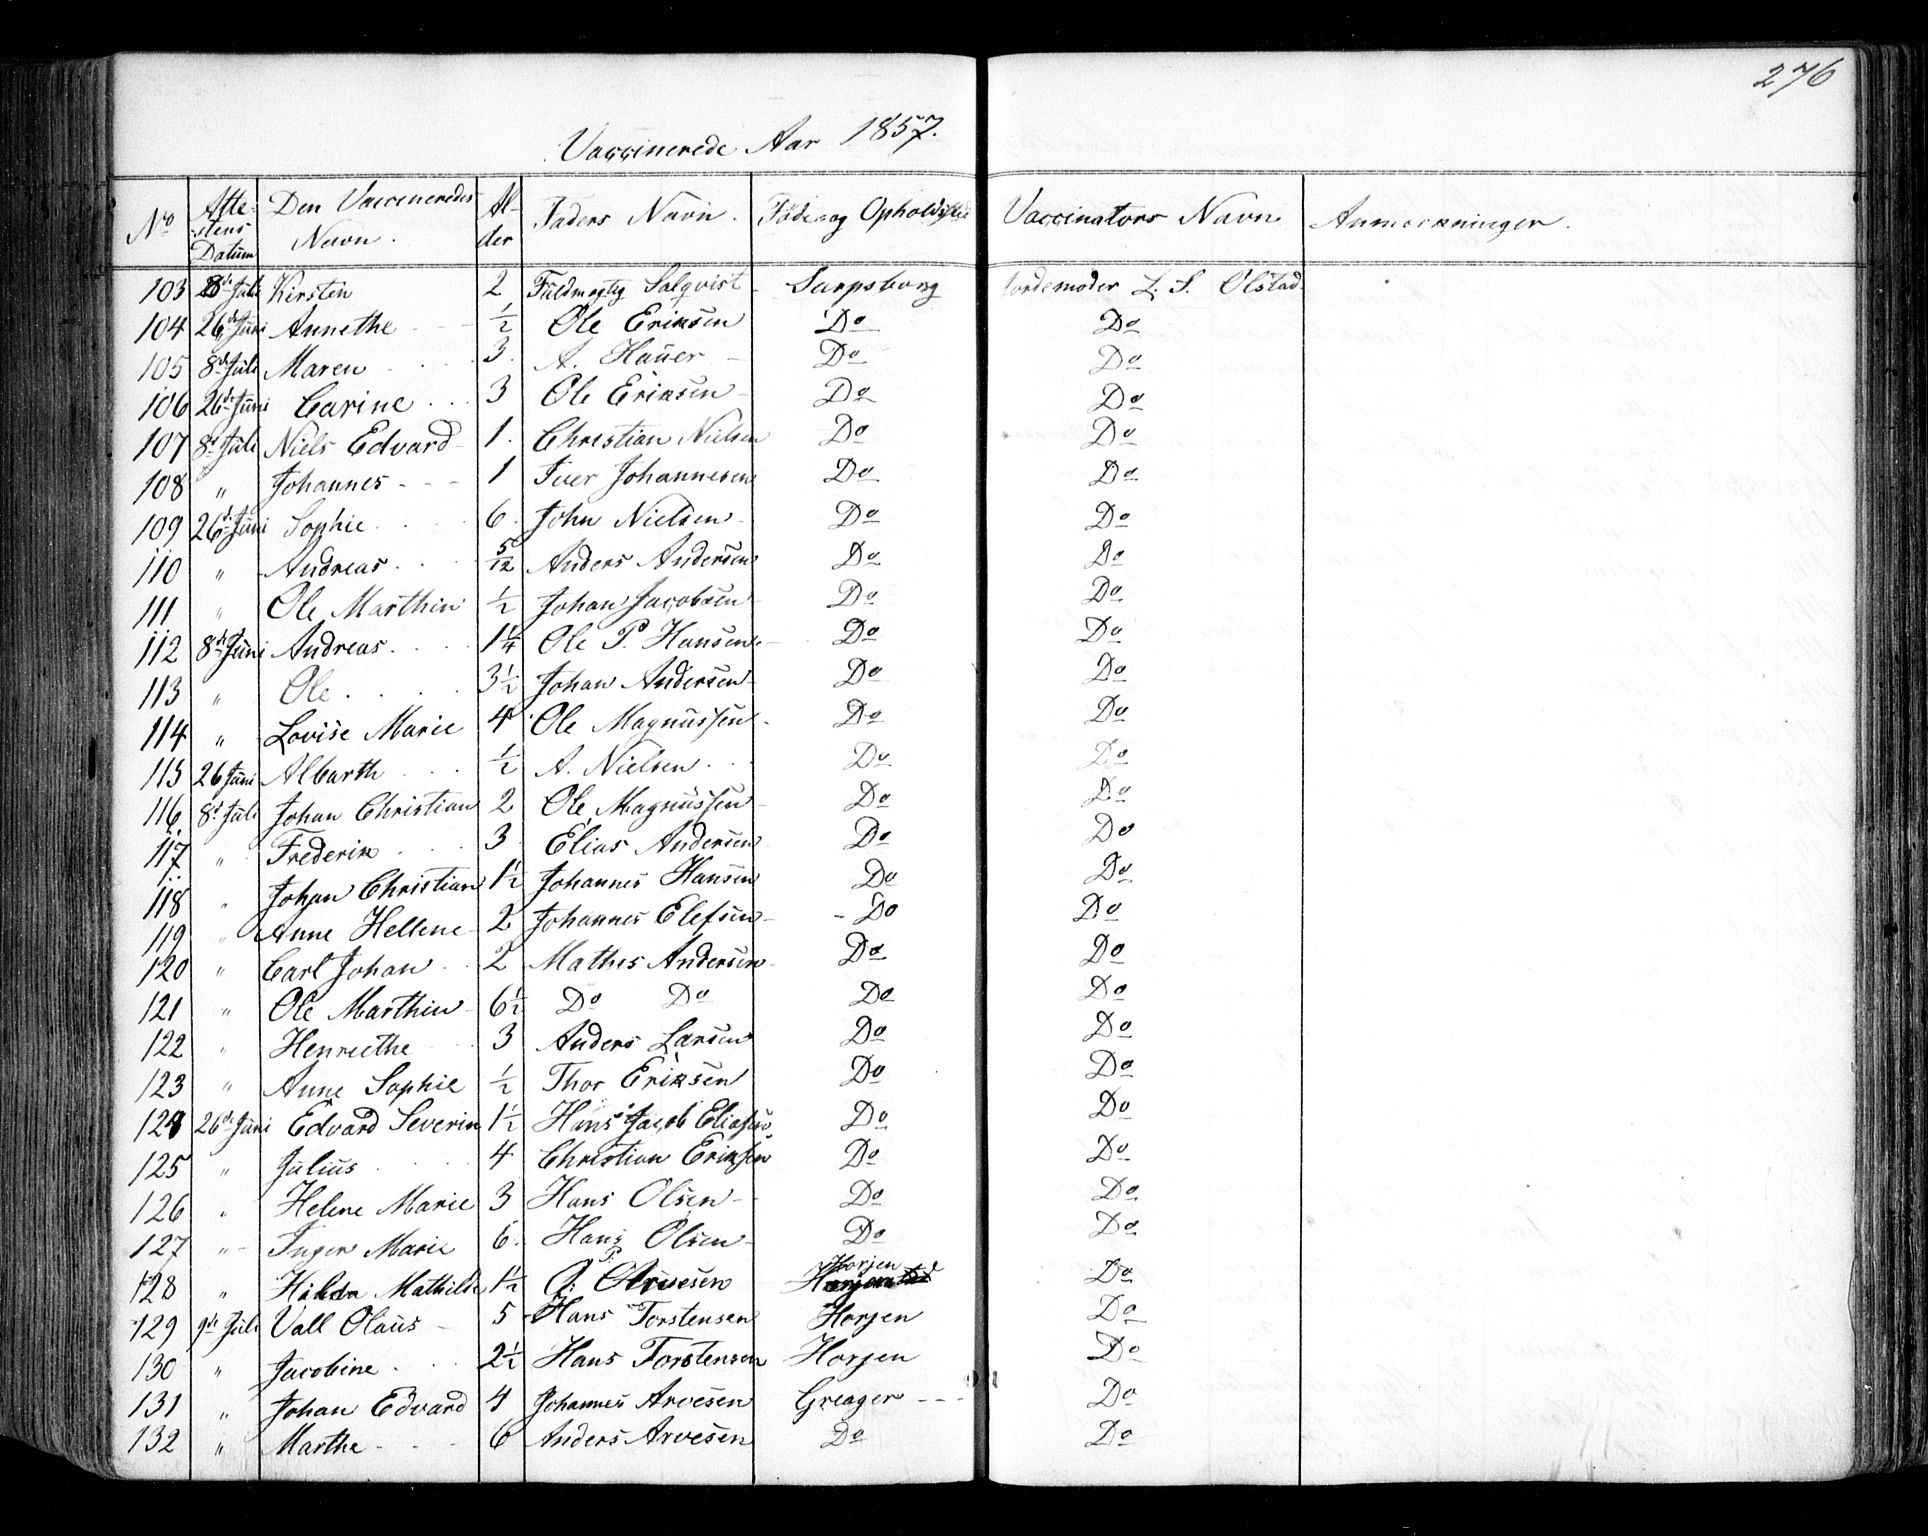 276
Vaccinerede Aar 1857.
No | Attestens Datum | Den Vaccineredes Navn. | Alder | Faders Navn. | Føde og Opholdssted | Vaccinators Navn | Anmærkninger.
103 8de Juli Kirsten 2 Fuldmægtig Solqvist Sarpsborg Jordemoder L. S. Olstad
104 26de Juni Annethe ½ Ole Eriksen Do Do
105 8de Juli Maren 3 A. Hauer Do Do
106 26de Juni Carine 3 Ole Eriksen Do Do
107 8d Juli Niels Edvard 1. Christian Nielsen Do Do
108 " Johannes 1 Iver Johannesen Do Do
109 26d Juni Sophie 6. John Nielsen Do Do
110 " Andreas 5/12 Anders Andersen Do Do
111 " Ole Marthin ½ Johan Jacobsen Do Do
112 8de Juni Andreas 1¼ Ole P. Hansen. Do Do
113 " Ole 3½ Johan Andersen Do Do
114 " Lovise Marie 4 Ole Magnussen Do Do
115 26 Juni Albarth ½ A. Nielsen Do Do
116 8d Juli Johan Christian 2 Ole Magnussen Do Do
117 " Frederik 3 Elias Andersen Do Do
118 " Johan Christian 1½ Johannes Hansen Do Do
119 " Anne Hellene 2 Johannes Elefsen Do Do
120 " Carl Johan 2 Mathis Andersen Do Do
121 " Ole Marthin 6½ Do Do Do Do
122 " Henriethe 3 Anders Larsen Do Do
123 " Anne Sophie ½ Thor Eriksen Do Do
124 26de Juni Edvard Severin 1½ Hans Jacob Eliasen Do Do
125 " Julius 4 Christian Eriksen Do Do
126 " Helene Marie 3 Hans Olsen Do Do
127 " Inger Marie 6. Hans Olsen Do Do
128 " Hilda Mathilde 1½ P. Arvesen Horjen Do
129 9de Juli Vall Olaus 5 Hans Torstensen Horjen Do
130 " Jacobine 2½ Hans Torstensen Horjen Do
131 " Johan Edvard 4 Johannes Arvesen Greager Do
132 " Marthe 6 Anders Arvesen Do Do